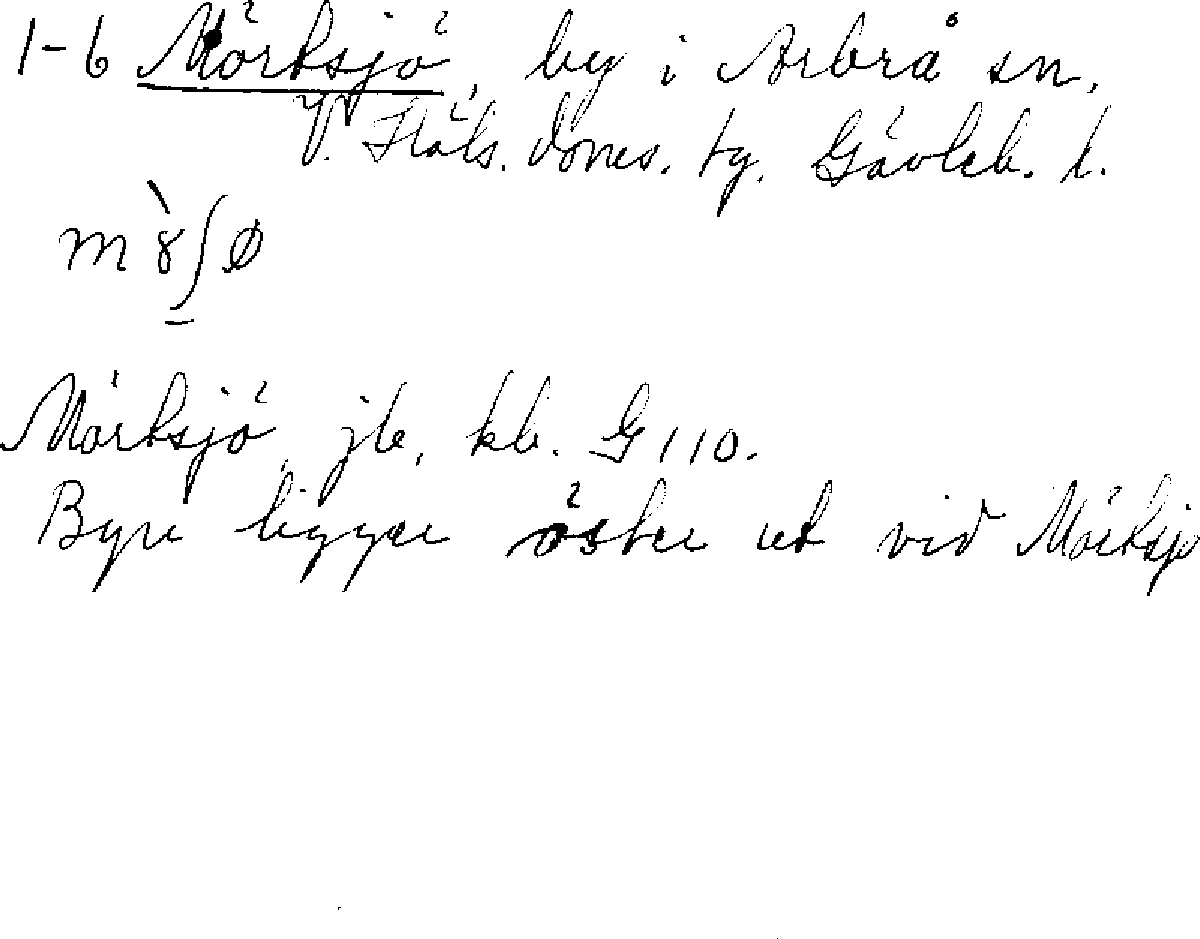 1-6 Mörksjö, by i Arbrå sn,
V. Häls. doms. tg. Gävleb. l.
Mörksjö, jb, kb. G 110.
Byn ligger öster ut vid Mörksjö